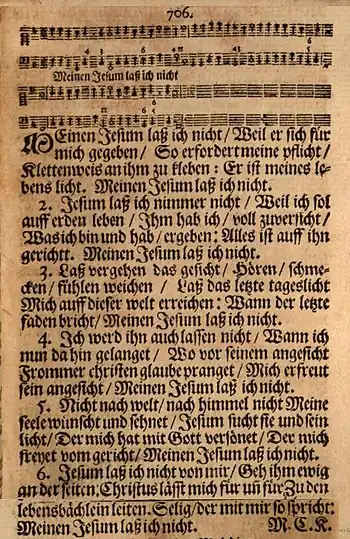 706.
Meinen Jesum laß ich nicht
MEinen Jesum laß ich nicht / Weil er sich für
mich gegeben / So erfordert meine pflicht /
Klettenweis an ihm zu kleben : Er ist meines le-
bens licht. Meinen Jesum laß ich nicht.
2. Jesum laß ich nimmer nicht / Weil ich sol
auff erden leben / Ihm hab ich / voll zuversicht /
Was ich bin und hab / ergeben: Alles ist auff ihn
gerichtt. Meinen Jesum laß ich nicht.
3. Laß vergehen das gesicht / Hören / schme-
cken / fühlen weichen / Laß das letzte tageslicht
Mich auff dieser welt erreichen: Wann der letzte
faden bricht / Meinen Jesum laß ich nicht.
4. Ich werd ihn auch lassen nicht / Wann ich
nun da hin gelanget / Wo vor seinem angesicht
Frommer christen glaube pranget / Mich erfreut
sein angesicht / Meinen Jesum laß ich nicht.
5. Nicht nach welt / nach himmel nicht Meine
seele wünscht und sehnet / Jesum sucht sie und sein
licht / Der mich hat mit Gott versönet / Der mich
freyet vom gericht / Meinen Jesum laß ich nicht.
6. Jesum laß ich nicht von mir / Geh ihm ewig
an der seiten: Christus lässt mich für uñ für Zu den
lebensbächlein leiten. Selig / der mit mir so spricht:
Meinen Jesum laß ich nicht. M. C. K.